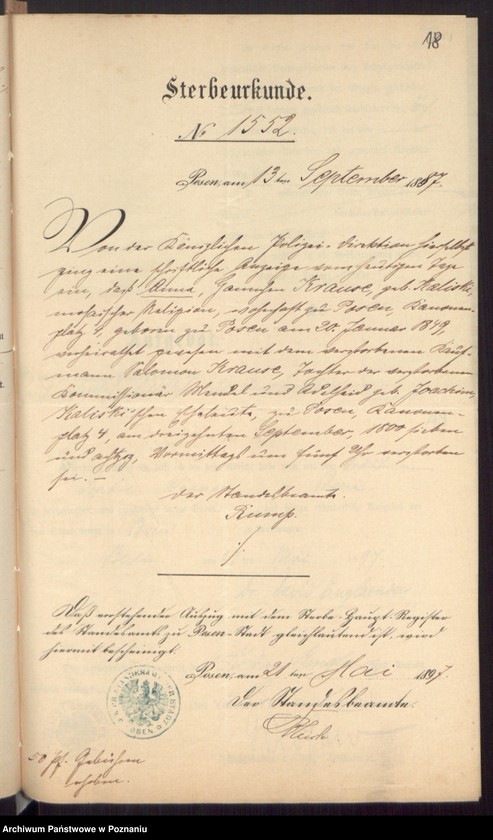 18
Sterbeurkunde.
No 1552.
Posen, am 13 ten September 1887.
Von der Königlichen Polizei-direktion hierselbst
ging eine schriftliche Anzeige vom heutigen Tage
ein, daß Anna, Hannchen Krause, geb. Kaliski,
mosaischer Religion, wohnhaft zu Posen, Kanonen-
platz 4, geboren zu Posen am 20. Januar 1842,
verheirathet gewesen mit dem verstorbenen Kauf-
mann Salomon Krause, Tochter der verstorbenen
Kommissionär Mendel und Adelheid geb. Joachim,
Kaliski'schen Eheleute, zu Posen, Kanonen-
platz 4, am dreizehnten September, 1800 sieben
und achtzig, Vormittags um fünf Uhr verstorben
sei. –
Der Standesbeamte.
Rump.
Daß vorstehender Auszug mit dem Sterbe-Haupt-Register
des Standesamts zu Posen-Stadt gleichlautend ist, wird
hiermit bescheinigt.
Posen, am 21 ten Mai 1897.
Der Standesbeamte.
50 Pf. Gebühren
erhoben.
Archiwum Państwowe w Poznaniu